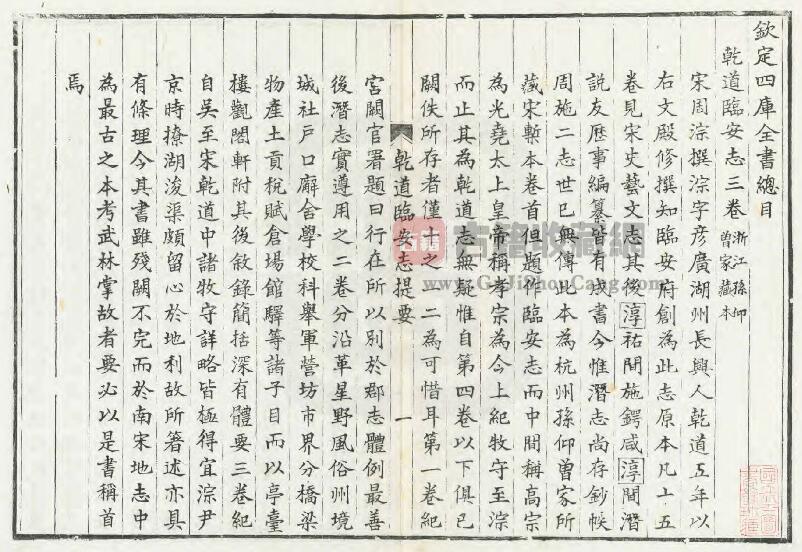 欽定四庫全書總目
乾道臨安志三卷浙江孫仰曾家藏本
宋周淙撰淙字彥廣湖州長興人乾道五年以
右文殿修撰知臨安府創為此志原本凡十五
卷見宋史藝文志其後淳祐間施鍔咸淳間潛
說友歷事編纂皆有成書今惟潛志尚存鈔帙
周施二志世已無傳此本為杭州孫仰曾家所
藏宋槧本卷首但題作臨安志而中間稱高宗
為光堯太上皇帝稱孝宗為今上紀牧守至淙
而止其為乾道志無疑惟自第四卷以下俱已
闕佚所存者僅十之一二為可惜耳第一卷紀
乾道臨安志提要 一
宮闕官署題曰行在所以別於郡志體例最善
後潛志實遵用之二卷分沿革星野風俗州境
城社戶口廨舍學校科舉軍營坊市界分橋梁
物產土貢稅賦倉場館驛等諸子目而以亭臺
樓觀閣軒附其後敘錄簡括深有體要三卷紀
自吳至宋乾道中諸牧守詳略皆極得宜淙尹
京時撩湖浚渠頗留心於地利故所著述亦具
有條理今其書雖殘闕不完而於南宋地志中
為最古之本考武林掌故者要必以是書稱首
焉
古籍收藏網
GuJiShouCang.Com